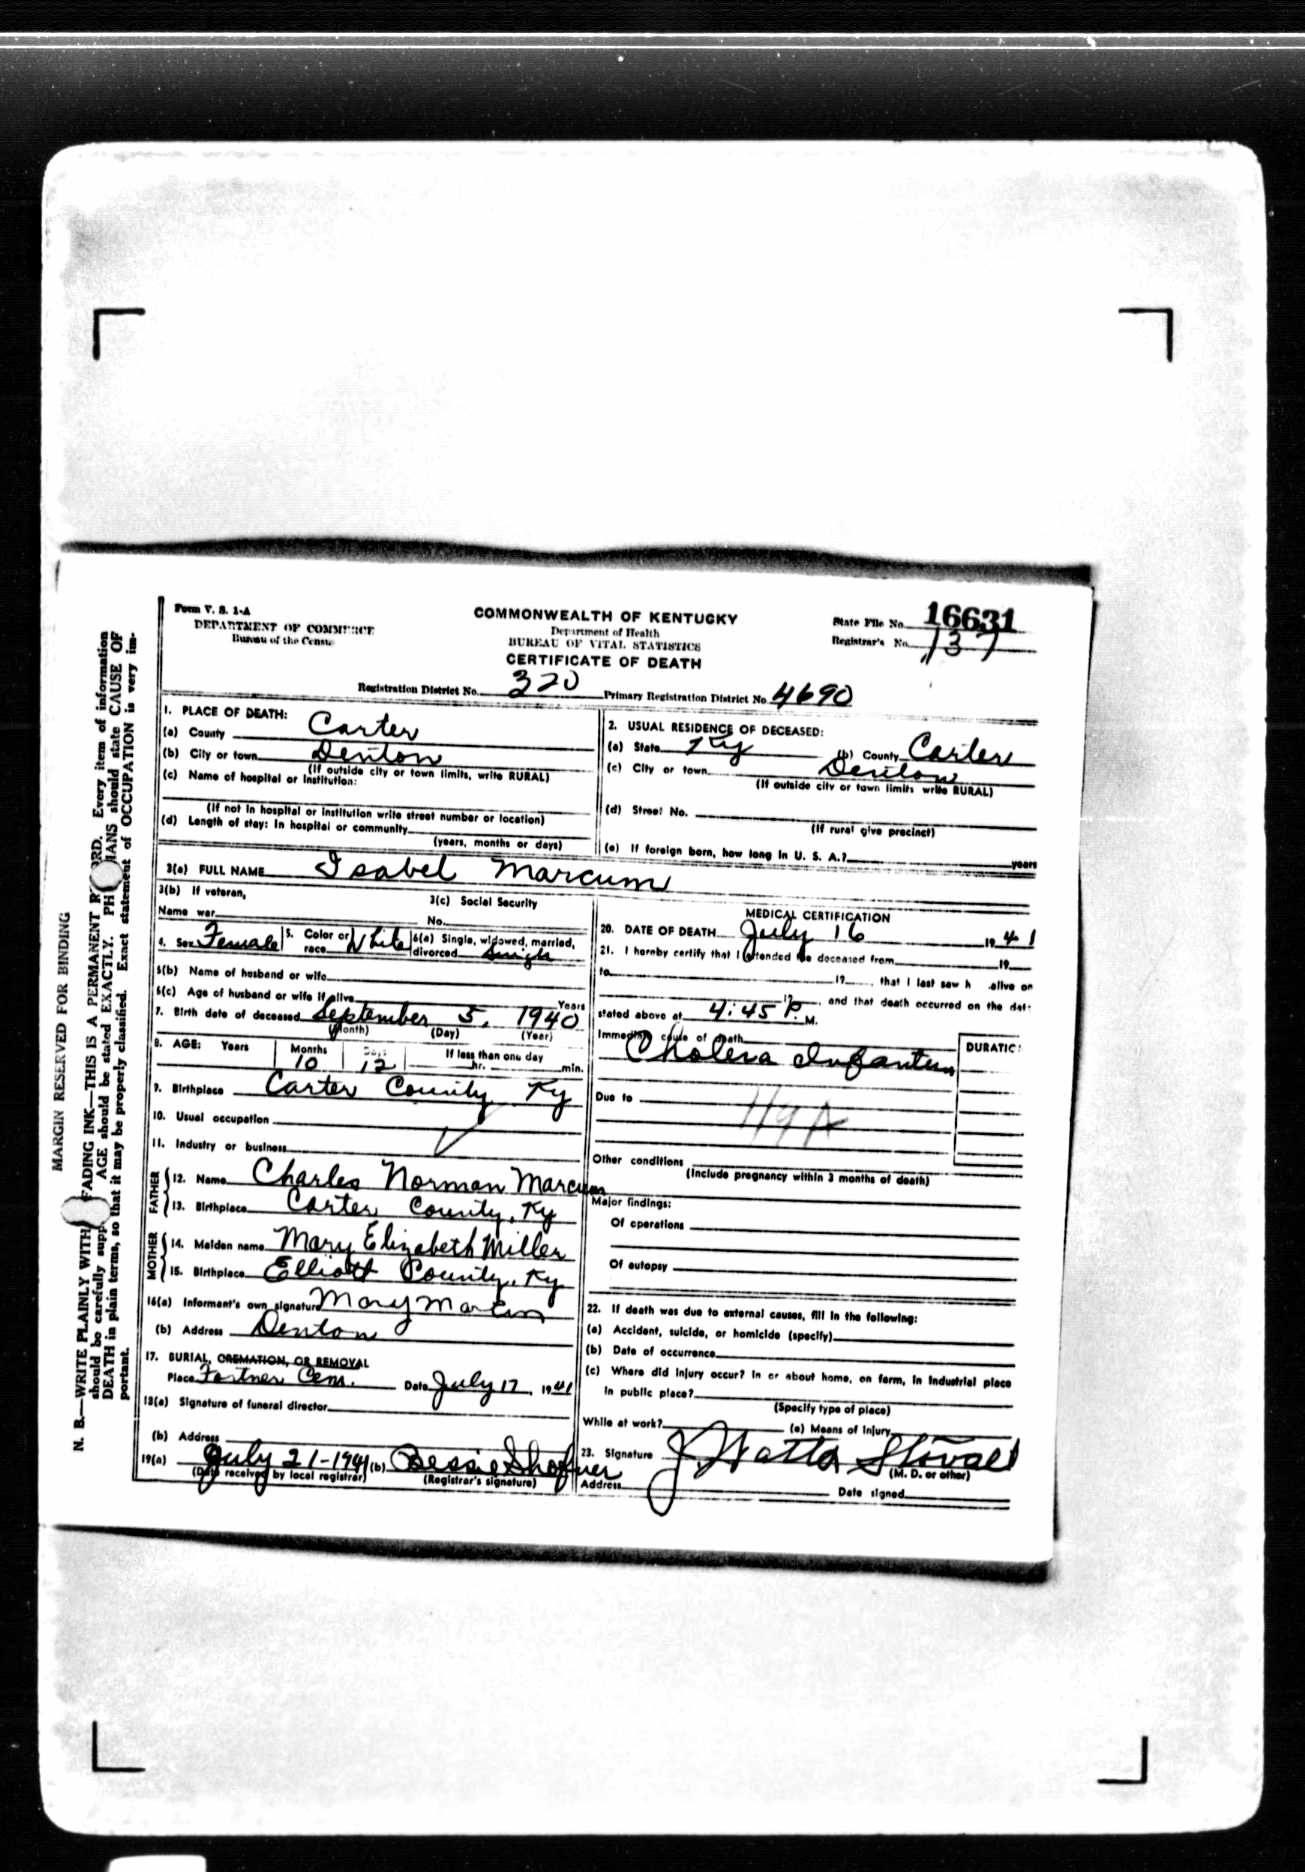 Form V. S. 1-A
DEPARTMENT OF COMMERCE
Bureau of the Census
COMMONWEALTH OF KENTUCKY
Department of Health
BUREAU OF VITAL STATISTICS
CERTIFICATE OF DEATH
State File No. 16631
Registrar's No. 137
Registration District No. 320 Primary Registration District No. 4690
MARGIN RESERVED FOR BINDING
N. B.—WRITE PLAINLY WITH FADING INK—THIS IS A PERMANENT RD. Every item of information
should be carefully supp AGE should be stated EXACTLY. PH IANS should state CAUSE OF
DEATH in plain terms, so that it may be properly classified. Exact statement of OCCUPATION is very im-
portant.
1. PLACE OF DEATH:
(a) County Carter
(b) City or town Denton
(If outside city or town limits, write RURAL)
(c) Name of hospital or institution:
(If not in hospital or institution write street number or location)
(d) Length of stay: In hospital or community
(years, months or days)
2. USUAL RESIDENCE OF DECEASED:
(a) State Ky (b) County Carter
(c) City or town Denton
(If outside city or town limits write RURAL)
(d) Street No.
(If rural give precinct)
(e) If foreign born, how long in U. S. A.? years
3(a) FULL NAME Isabel Marcum
3(b) If veteran,
Name war
3(c) Social Security
No.
4. Sex Female 5. Color or race White 6(a) Single, widowed, married, divorced Single
6(b) Name of husband or wife
6(c) Age of husband or wife if alive Years
7. Birth date of deceased September 5, 1940
(Month) (Day) (Year)
8. AGE: Years Months Days If less than one day
10 12 hr. min.
9. Birthplace Carter County Ky
10. Usual occupation
11. Industry or business
FATHER
12. Name Charles Norman Marcum
13. Birthplace Carter County, Ky
MOTHER
14. Maiden name Mary Elizabeth Miller
15. Birthplace Elliott County, Ky
16(a) Informant's own signature Mary Marcum
(b) Address Denton
17. BURIAL, CREMATION, OR REMOVAL
Place Fortner Cem. Date July 17, 1941
18(a) Signature of funeral director
(b) Address
19(a) July 21-1941 (b) Bessie Shofner
(Date received by local registrar) (Registrar's signature)
MEDICAL CERTIFICATION
20. DATE OF DEATH July 16 1941
21. I hereby certify that I attended the deceased from 19
to 19, that I last saw h alive on
19, and that death occurred on the dat-
stated above at 4:45 P. M.
Immediate cause of death
Cholera Infantum
DURATIC
Due to
119A
Other conditions
(Include pregnancy within 3 months of death)
Major findings:
Of operations
Of autopsy
22. If death was due to external causes, fill in the following:
(a) Accident, suicide, or homicide (specify)
(b) Date of occurrence
(c) Where did injury occur? In or about home, on farm, in industrial place
In public place?
(Specify type of place)
While at work? (e) Means of Injury
23. Signature J Watts Stovall
(M. D. or other)
Address
Date signed